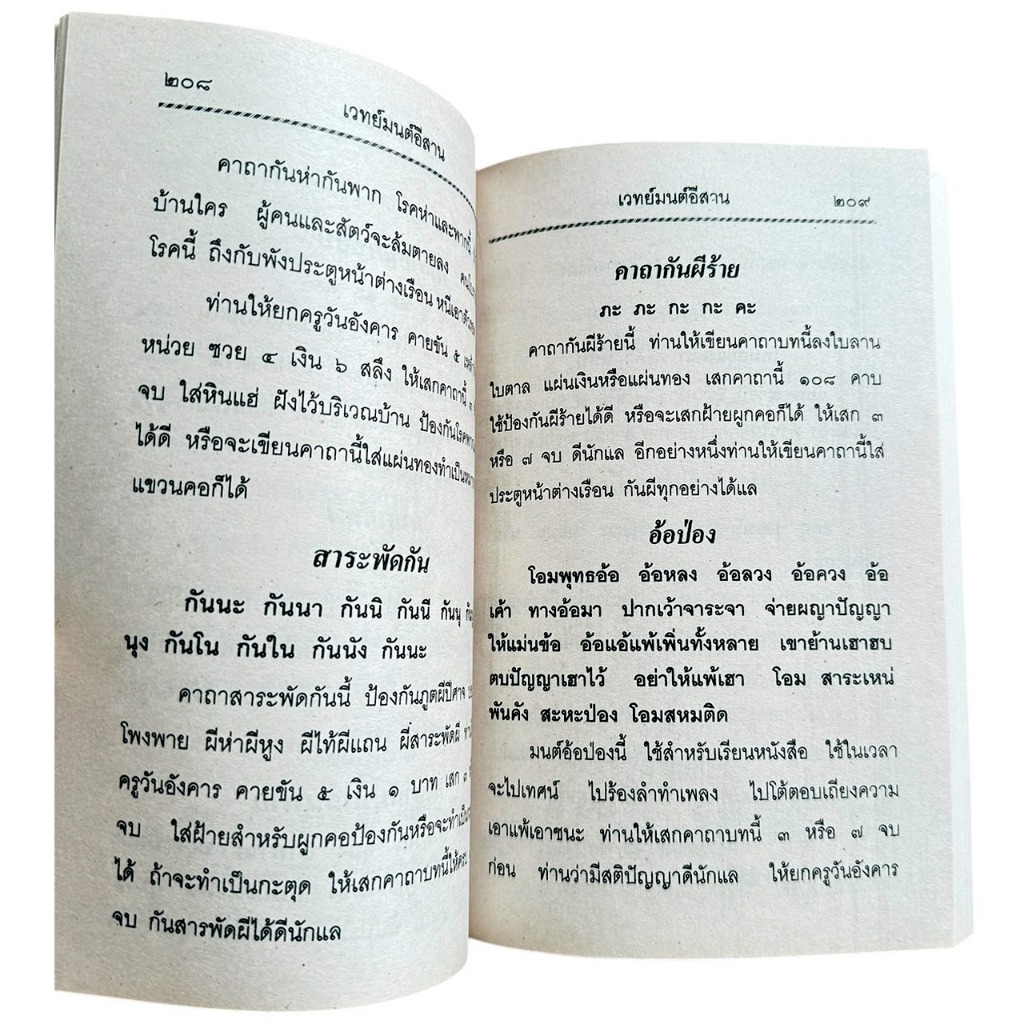 ๒๐๘
เวทย์มนต์อีสาน
คาถากันห่ากันพาก โรคห่าและพากนี้
บ้านใคร ผู้คนและสัตว์จะล้มตายลง
โรคนี้ ถึงกับพังประตูหน้าต่างเรือน หนีเอาตัว
ท่านให้ยกครูวันอังคาร คายขัน ๕
หน่วย ซวย ๔ เงิน ๖ สลึง ให้เสกคาถานี้
จบ ใส่หินแฮ่ ฝังไว้บริเวณบ้าน ป้องกันโรค
ได้ดี หรือจะเขียนคาถานี้ใส่แผ่นทองทำเป็น
แขวนคอก็ได้
สาระพัดกัน
กันนะ กันนา กันนิ กันนี กันนุ
นุง กันโน กันใน กันนัง กันนะ
คาถาสาระพัดกันนี้ ป้องกันภูตผีปีศาจ
โพงพาย ผีห่าผีหูง ผีไท้ผีแถน ผีสาระพัดผี
ครูวันอังคาร คายขัน ๕ เงิน ๑ บาท เสก
จบ ใส่ฝ้ายสำหรับผูกคอป้องกันหรือจะทำเป็น
ได้ ถ้าจะทำเป็นกะตุด ให้เสกคาถาบทนี้ให้
จบ กันสารพัดผีได้ดีนักแล
เวทย์มนต์อีสาน ๒๐๙
คาถากันผีร้าย
ภะ ภะ กะ กะ คะ
คาถากันผีร้ายนี้ ท่านให้เขียนคาถาบทนี้ลงใบลาน
ใบตาล แผ่นเงินหรือแผ่นทอง เสกคาถานี้ ๑๐๘ คาบ
ใช้ป้องกันผีร้ายได้ดี หรือจะเสกฝ้ายผูกคอก็ได้ ให้เสก ๓
หรือ ๗ จบ ดีนักแล อีกอย่างหนึ่งท่านให้เขียนคาถานี้ใส่
ประตูหน้าต่างเรือน กันผีทุกอย่างได้แล
อ้อป่อง
โอมพุทธอ้อ อ้อหลง อ้อลวง อ้อควง อ้อ
เค้า ทางอ้อมา ปากเว้าจาระจา จ่ายผญาปัญญา
ให้แม่นข้อ อ้อแอ้แพ้เพิ่นทั้งหลาย เขาย้านเฮาฮบ
ตบปัญญาเฮาไว้ อย่าให้แพ้เฮา โอม สาระเหน่
พันคัง สะหะป่อง โอมสหมติด
มนต์อ้อป่องนี้ ใช้สำหรับเรียนหนังสือ ใช้ในเวลา
จะไปเทศน์ ไปร้องลำทำเพลง ไปโต้ตอบเถียงความ
เอาแพ้เอาชนะ ท่านให้เสกคาถาบทนี้ ๓ หรือ ๗ จบ
ก่อน ท่านว่ามีสติปัญญาดีนักแล ให้ยกครูวันอังคาร